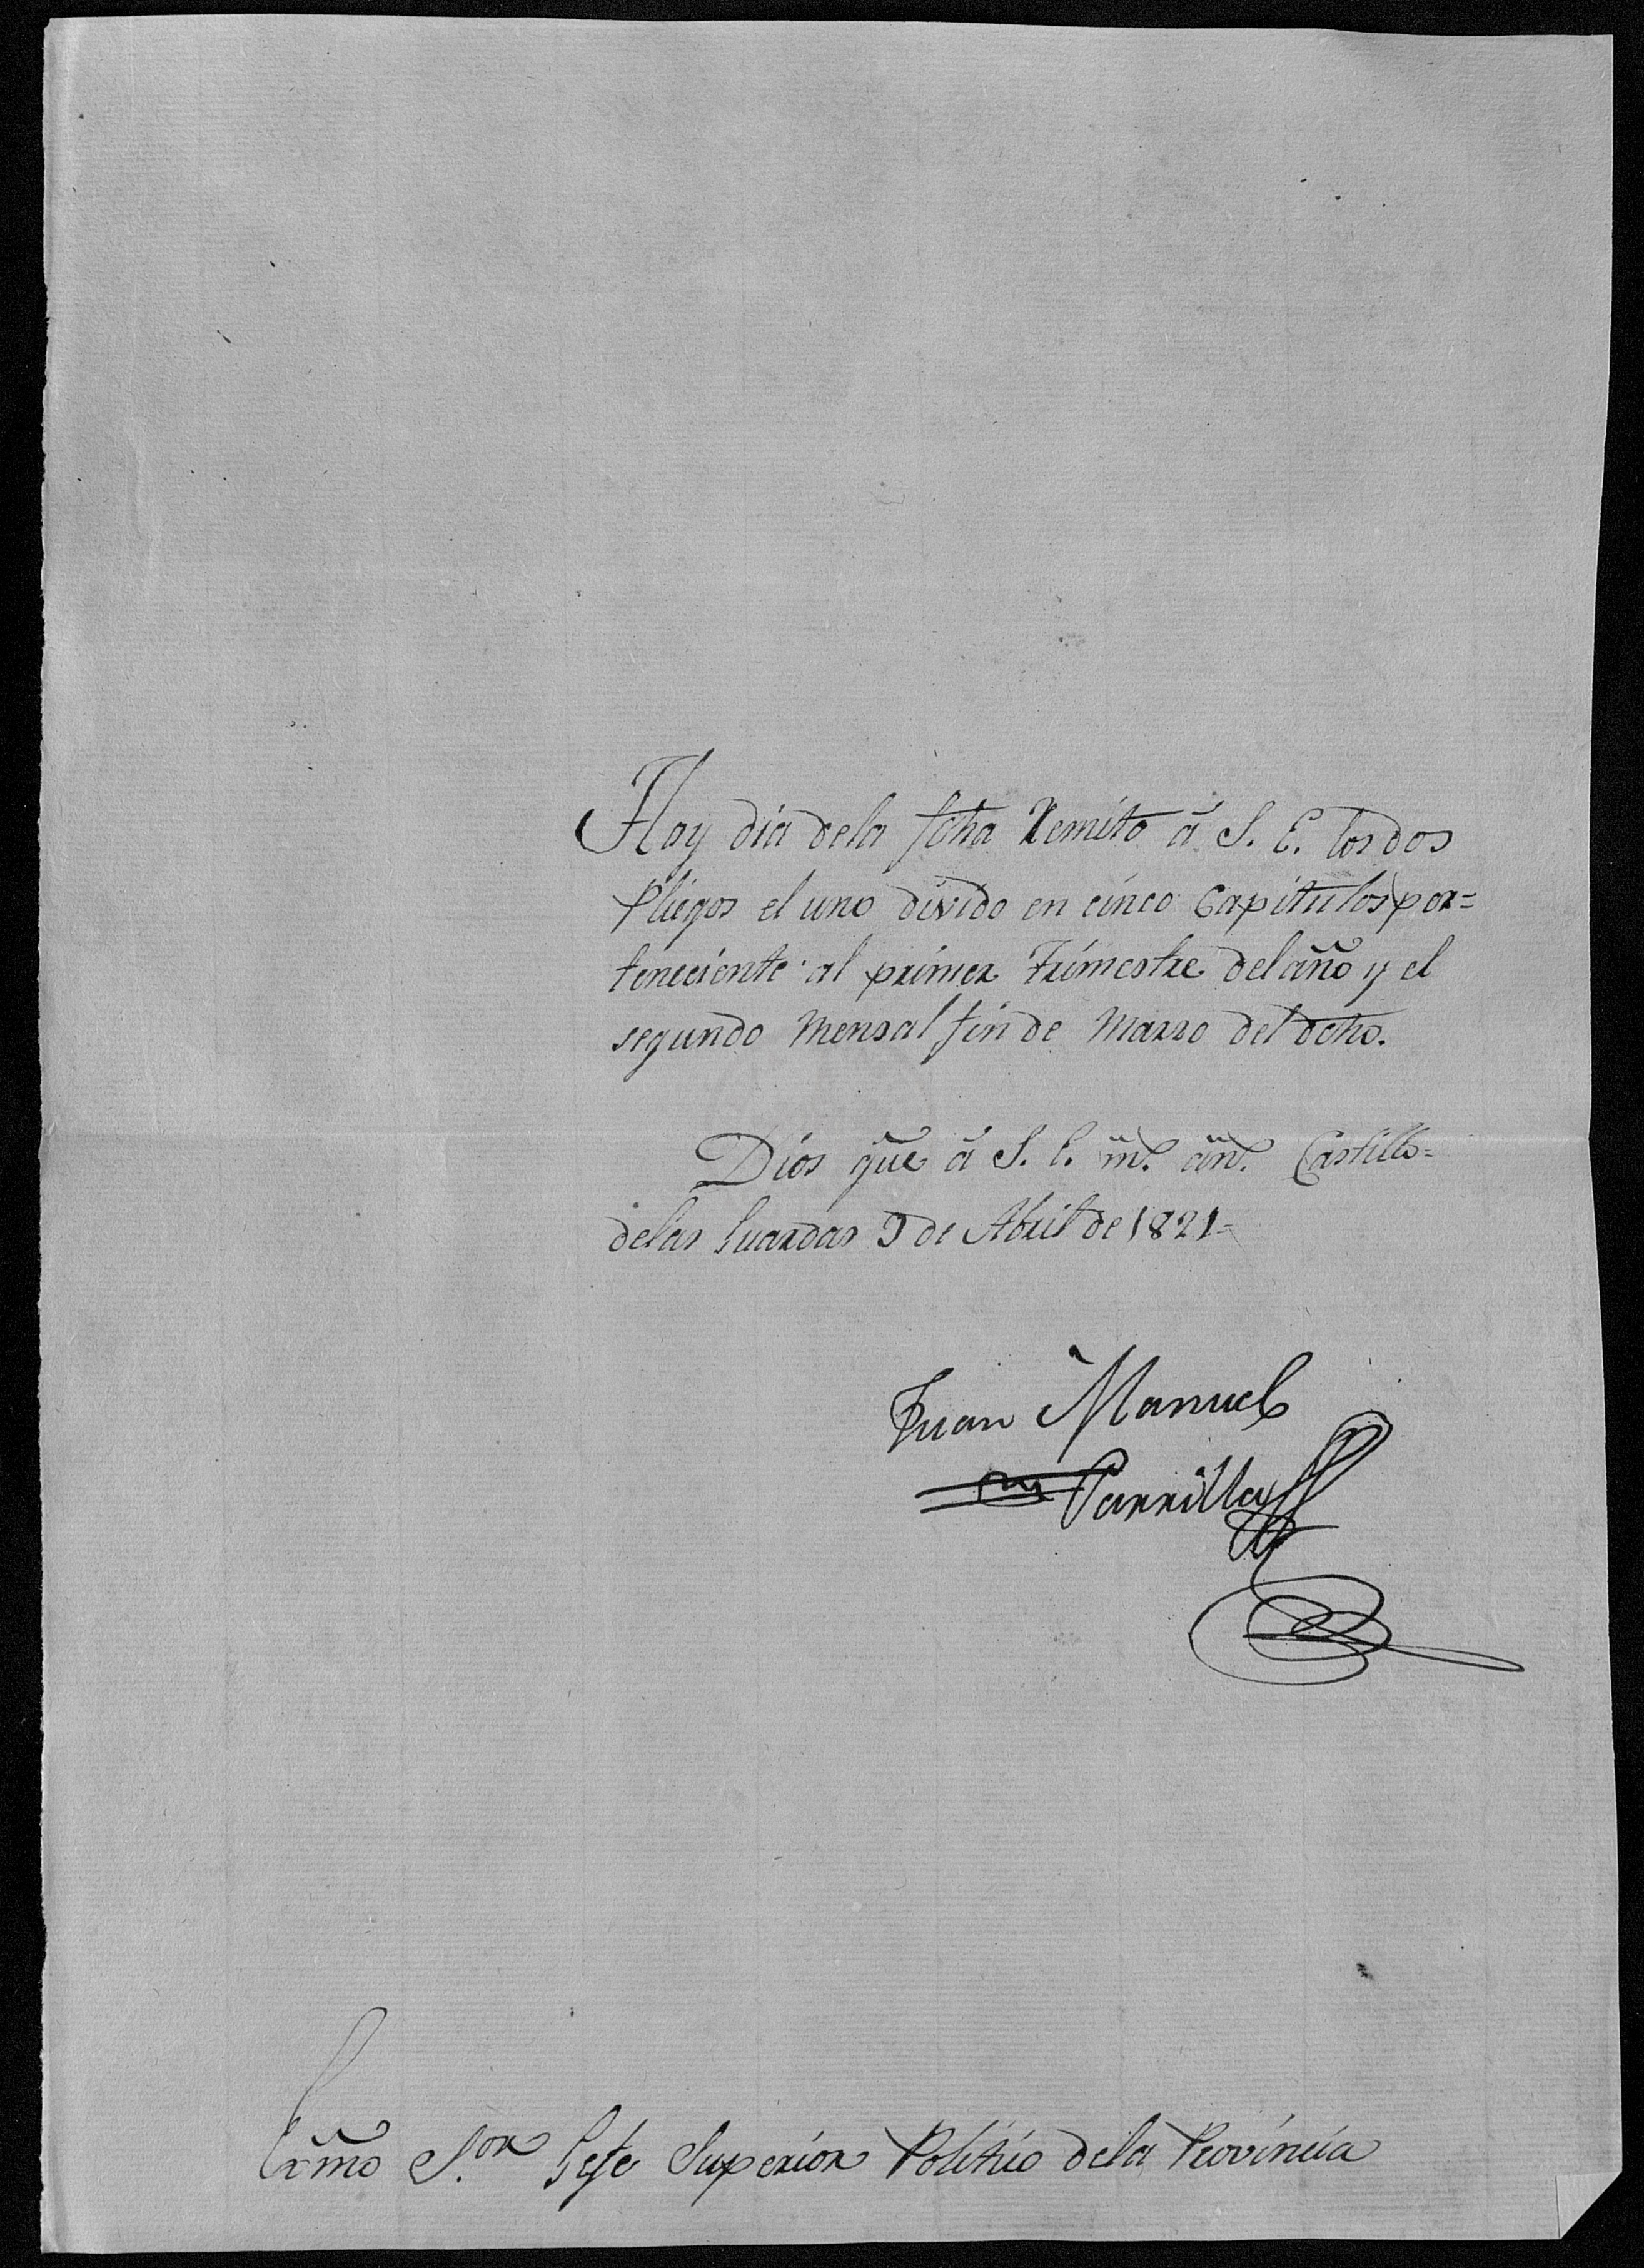 Hoy dia dela fcha Remito á S. E. los dos
Pliegos el uno divido en cinco Capitulos per=
teneciente al primer trimestre del año y el
segundo Mensal fin de Marzo del dcho.
Dios gũe á S. E. m.s an.s Castillo=
delas Guardas 9 de Abril de 1821=
Juan Manuel
Parrilla
Exm̃o S.or Gefe Superior Politico dela Provincia